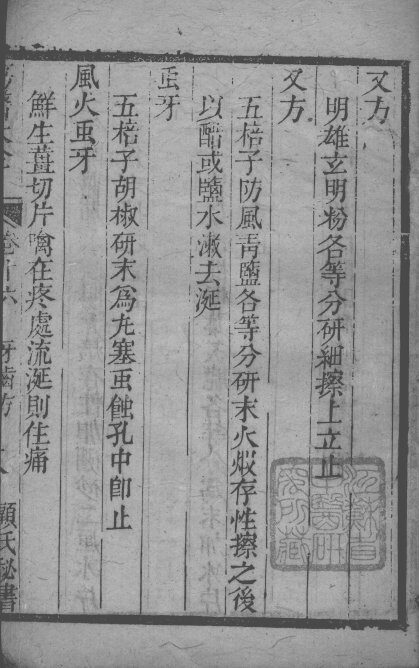 又方
明雄玄明粉各等分研細擦上立止
又方
五棓子防風靑鹽各等分研末火煆存性擦之後
以醋或鹽水漱去涎
䖝牙
五棓子胡椒研末爲丸塞䖝蝕孔中卽止
風火䖝牙
鮮生薑切片噙在疼處流涎則住痛
卷十六 牙齒方 顧氏秘書